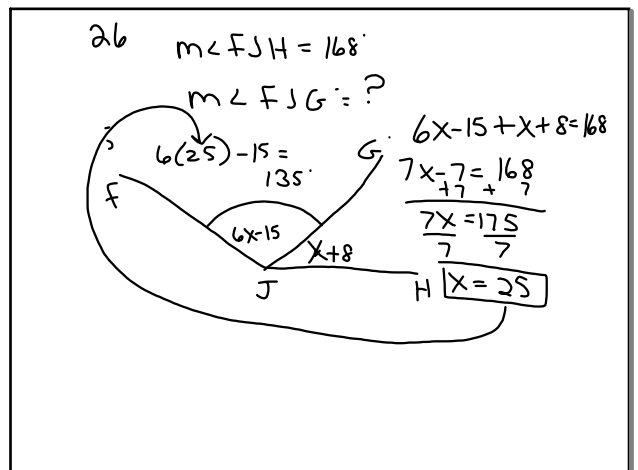 26
m<FJH = 168°
m<FJG = ?
6(25) - 15 =
135°
6x-15+x+8=168
7x-7 = 168
+7 + 7
7x = 175
7 7
x = 25
G
f
6x-15
x+8
J
H